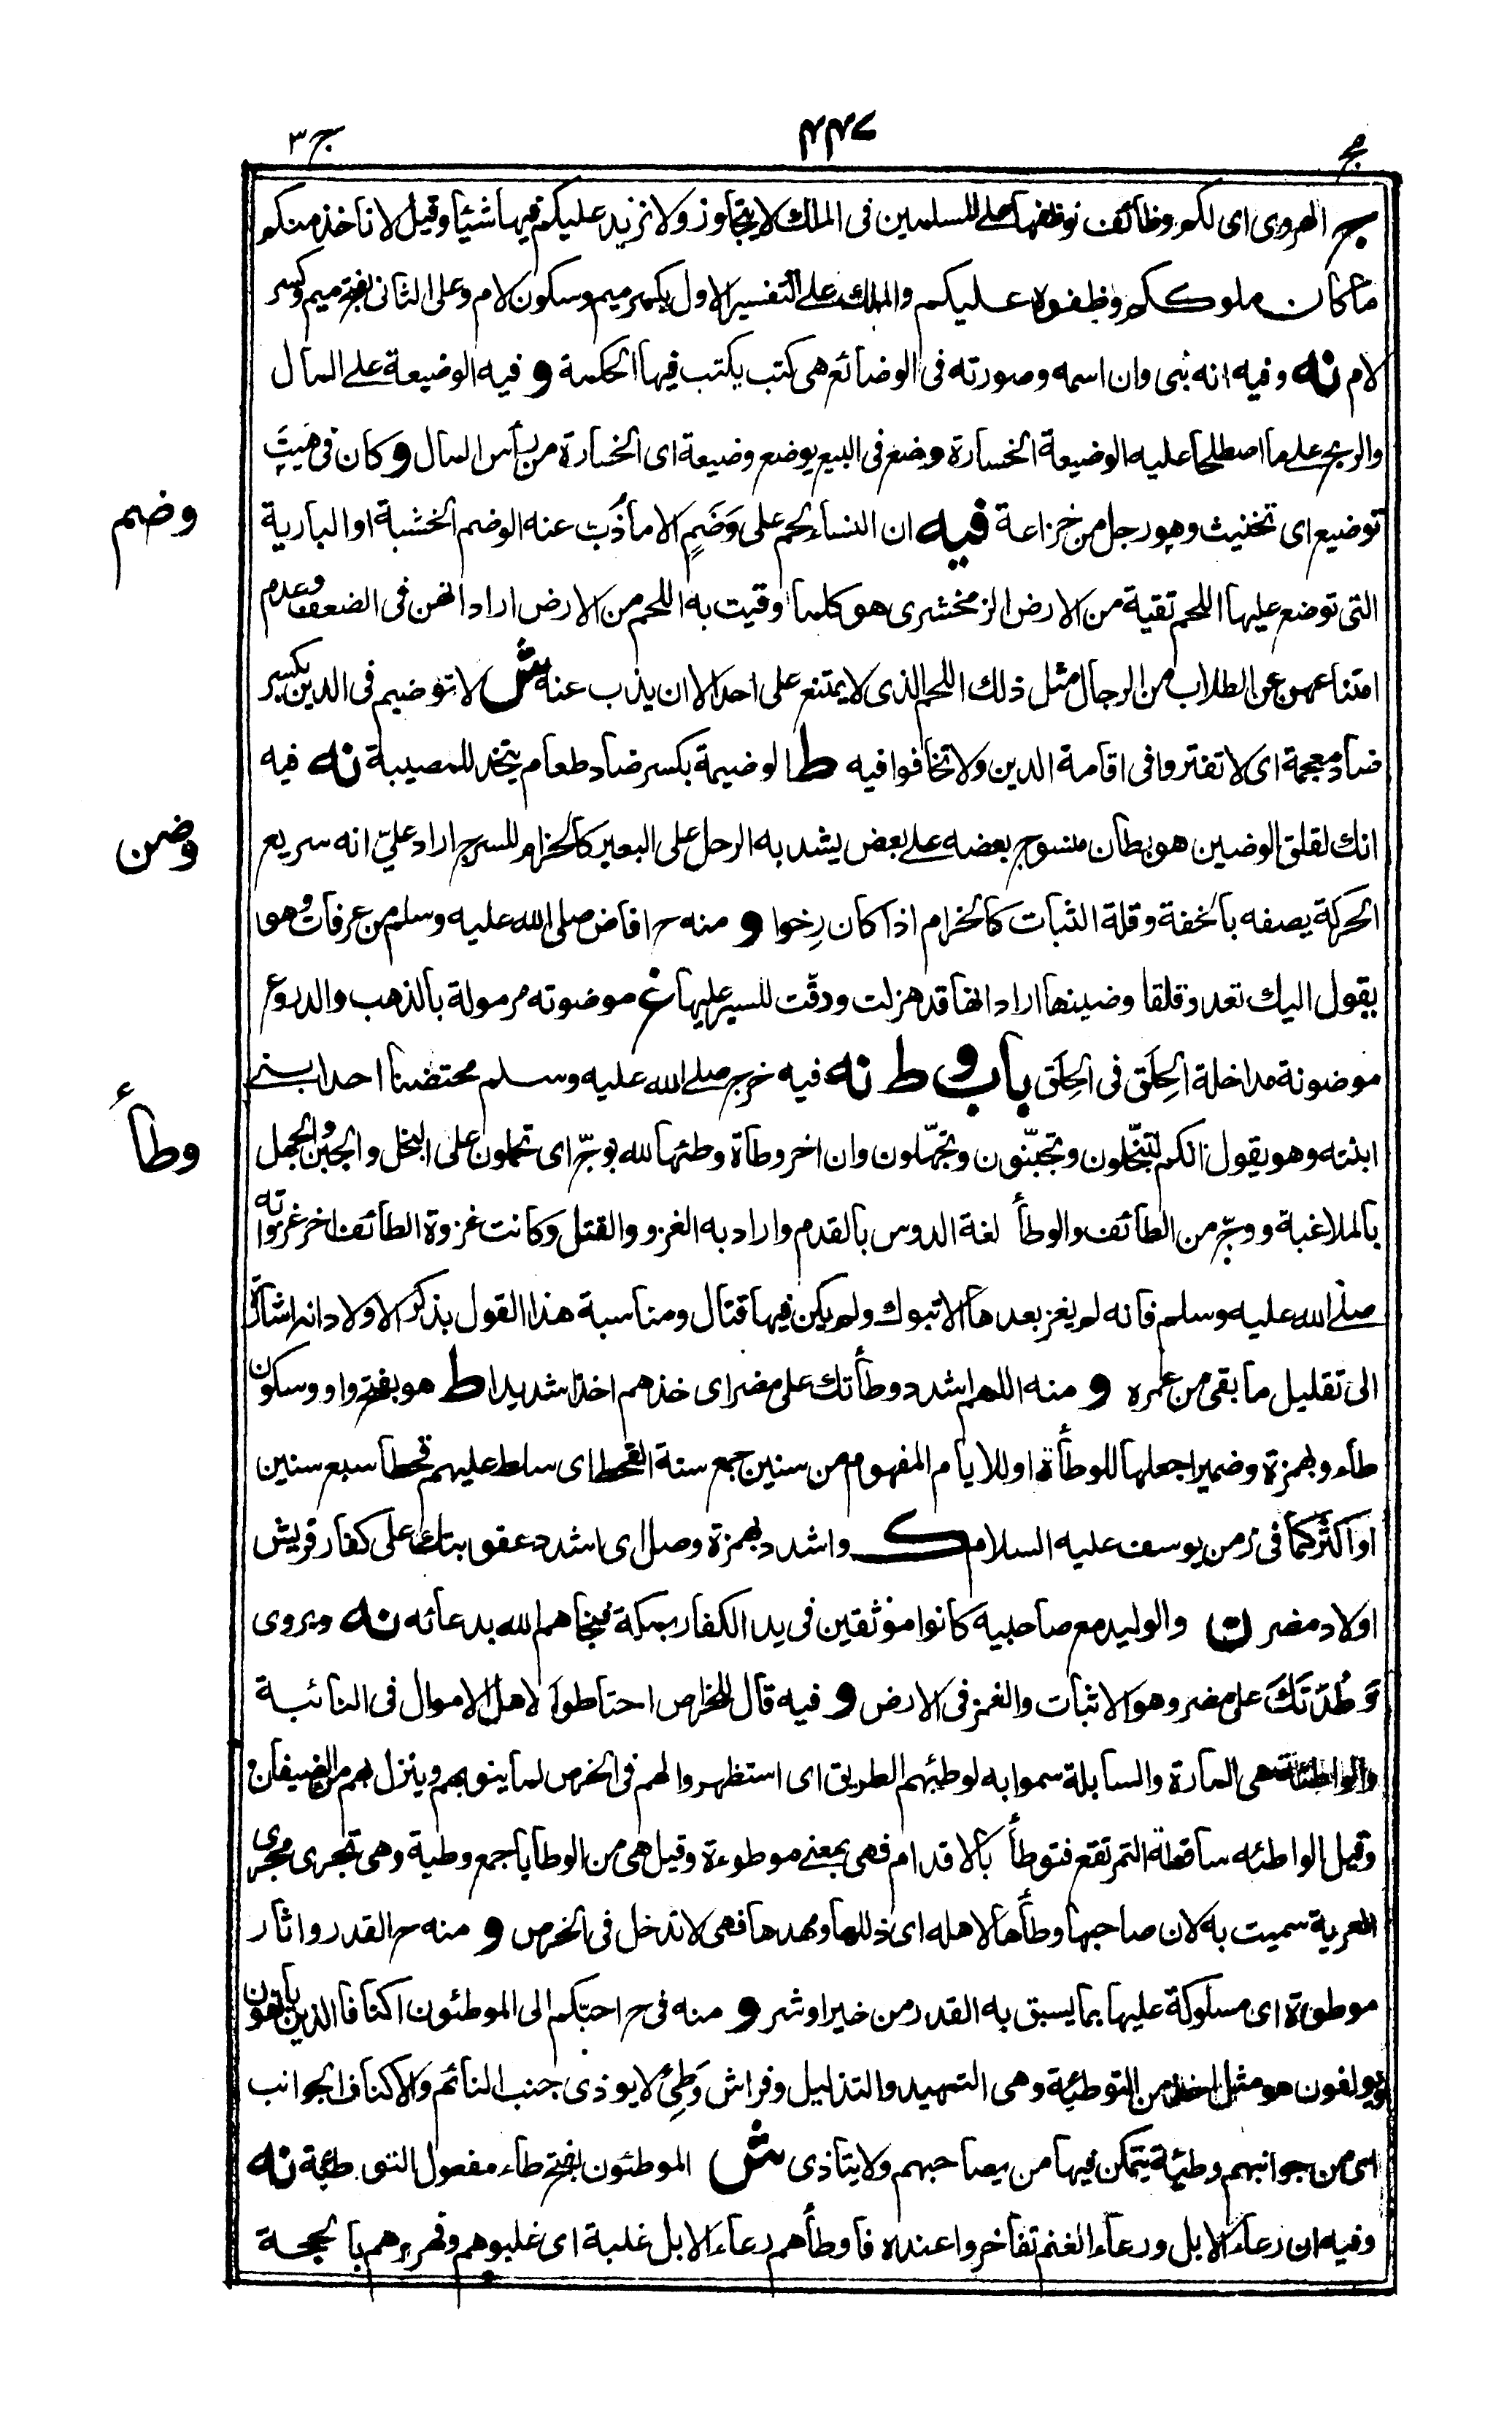 مج
٤٤٧
ج ٣
ج الهروى اى لكم وظائف نوظفها على المسلمين فى الملك لا يتجاوز ولا نزيد عليكم فيها شيئا وقيل لا ناخذ منكم
ما كان ملوككم وظفوه عليكم والملك على التفسير الاول بكسر ميم وسكون لام وعلى الثانى بفتح ميم وكسر
لام نه وفيه انه نبى وان اسمه وصورته فى الوضائع هى كتب يكتب فيها الحكمة و فيه الوضيعة على المال
والربح على ما اصطلحا عليه الوضيعة الخسارة وضع فى البيع يوضع وضيعة اى الخسارة من رأس المال و كان فى هيت
توضيع اى تخنيث وهو رجل من خزاعة فيه ان النساء لحم على وَضَمٍ الا ما ذُبّ عنه الوضم الخشبة او البارية
وضم
التى توضع عليها اللحم تقية من الارض الزمخشرى هو كلما وقيت به اللحم من الارض اراد انهن فى الضعف وعدم
امتناعهن عن الطلاب من الرجال مثل ذلك اللحم الذى لا يمتنع على احد الا ان يذب عنه ش لا توضيم فى الدين بكسر
ضاد معجمة اى لا تفتروا فى اقامة الدين ولا تخافوا فيه ط الوضيمة بكسر ضاد طعام يتخذ للمصيبة نه فيه
انك لقلق الوضين هو بطان منسوج بعضه على بعض يشد به الرحل على البعير كالحزام للسرج اراد علىّ انه سريع
وضن
الحركة يصفه بالخفة وقلة الثبات كالحزام اذا كان رِخوا و منه ح افاض صلى الله عليه وسلم من عرفات وهو
يقول اليك تعدو قلقا وضينها اراد انها قد هزلت ودقّت للسير عليها غ موضونه مرمولة بالذهب والدروع
موضونة مداخلة الحِلَق فى الحِلَق باب وط نه فيه خرج صلى الله عليه وسلم محتضنا احد ابنى
ابنته وهو يقول انكم لتبخّلون وتجبّنون وتجهّلون وان اخر وطاة وطئها الله بوجّ اى تحملون على البخل والجبن والجهل
وطأ
بالملاعبة ووجّ من الطائف والوطأ لغة الدوس بالقدم واراد به الغزو والقتل وكانت غزوة الطائف اخر غزواته
صلى الله عليه وسلم فانه لم يغز بعدها الا تبوك ولم يكن فيها قتال ومناسبة هذا القول بذكر الاولاد انه اشارة
الى تقليل ما بقى من عمره و منه اللهم اشدد وطأتك على مضر اى خذهم اخذا شديدا ط هو بفتح واو وسكون
طاء وبهمزة وضمير اجعلها للوطأة او للايام المفهوم من سنين جمع سنة القحط اى سلط عليهم قحطا سبع سنين
او اكثر كما فى زمن يوسف عليه السلام ك واشدد بهمزة وصل اى اشدد عقوبتك على كفار قريش
اولاد مضر ن والوليد مع صاحبيه كانوا موثقين فى يد الكفار بمكة فنجاهم الله بدعائه نه ويروى
وَطْدَتَكَ على مضر وهو الاثبات والغمز فى الارض و فيه قال للخراص احتاطوا لاهل الاموال فى النائبة
والواطئة هى المارة والسابلة سموا به لوطئهم الطريق اى استظهروا لهم فى الخرص لما ينوبهم وينزل بهم من الضيفان
وقيل الواطئه ساقطة التمر تقع فتوطأ بالاقدام فهى بمعنى موطوءة وقيل هى من الوطايا جمع وطية وهى تجرى مجرى
العرية سميت به لان صاحبها وطأها لاهله اى ذللها ومهدها فهى لا تدخل فى الخرص و منه ح القدر واثار
موطوءة اى مسلوكة عليها بما يسبق به القدر من خير او شر و منه فى ح احبّكم الى الموطئون اكنافا الذين يألفون
ويولفون هو مثل من التوطئة وهى التمهيد والتذليل وفراش وَطِئ لا يوذى جنب النائم والاكناف الجوانب
اى من جوانبهم وطيئة يتمكن فيها من يصاحبهم ولا يتاذى ش الموطئون بفتح طاء مفعول التوطئة نه
وفيه ان رعاء الابل ورعاء الغنم تفاخروا عنده فاوطأهم رعاء الابل غلبة اى غلبوهم وقهروهم بالحجة